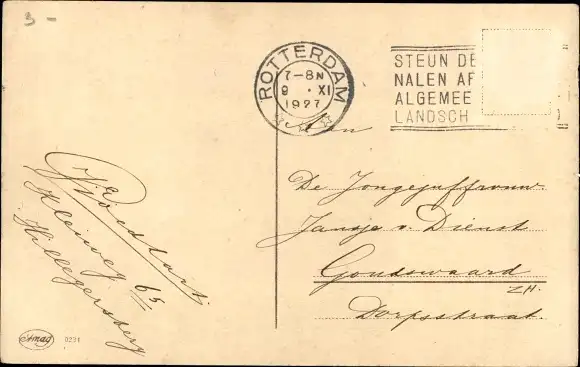 3 -
ROTTERDAM
7-8N
9 · XI
1927
STEUN DE
NALEN AF
ALGEMEE
LANDSCH
Aan
De Jongejuffrouw
Jansje v. Dienst
Goudswaard
ZH.
Dorpsstraat.
Kleiweg 65
Hillegersberg
Amag
0231